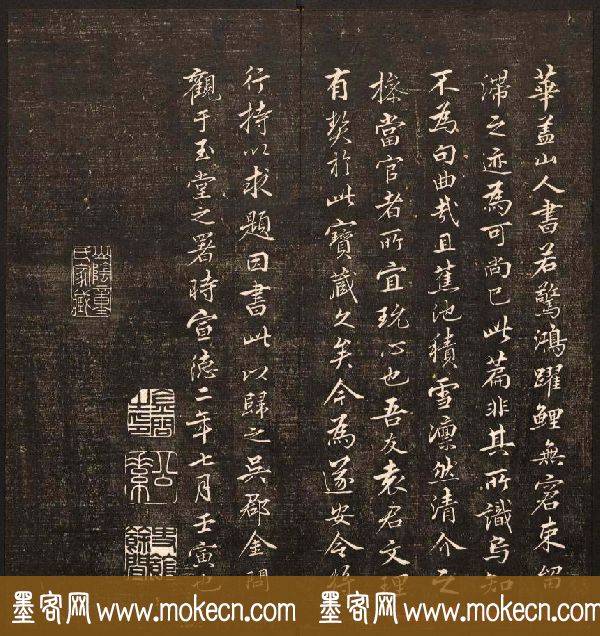 華盖山人書若驚鴻躍鯉無窘束留
滞之迹為可尚已此篇非其所識烏知
不為句曲哉且蕉池積雪凛然清介之
操當官者所宜玩心也吾友袁君文理
有契於此寶藏久矣今為遂安令將
行持以求題因書此以歸之吳郡金問
觀于玉堂之署時宣德二年七月壬寅也
墨客网 www.mokecn.com 墨客网 www.mokecn.com